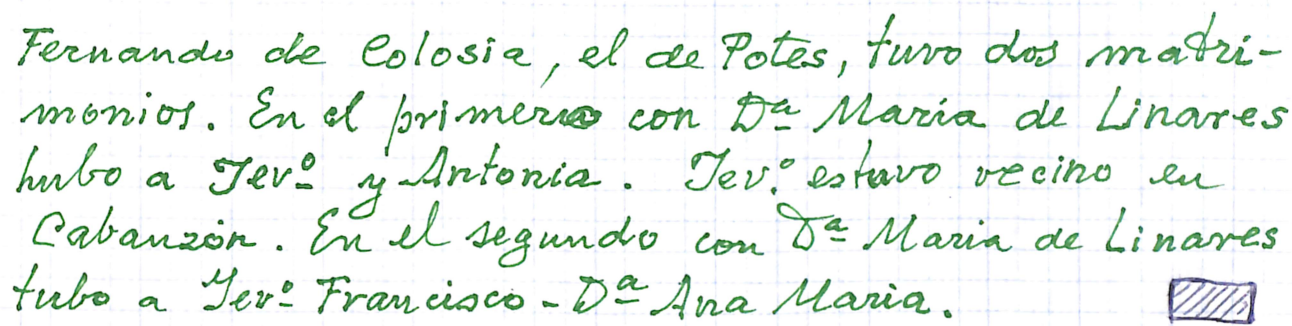 Fernando de Colosia, el de Potes, tuvo dos matri-
monios. En el primero con Dª María de Linares
hubo a Jevº y Antonia. Jev.º estuvo vecino en
Cabanzón. En el segundo con Dª Maria de Linares
tubo a Jevº Francisco - Dª Ana Maria.